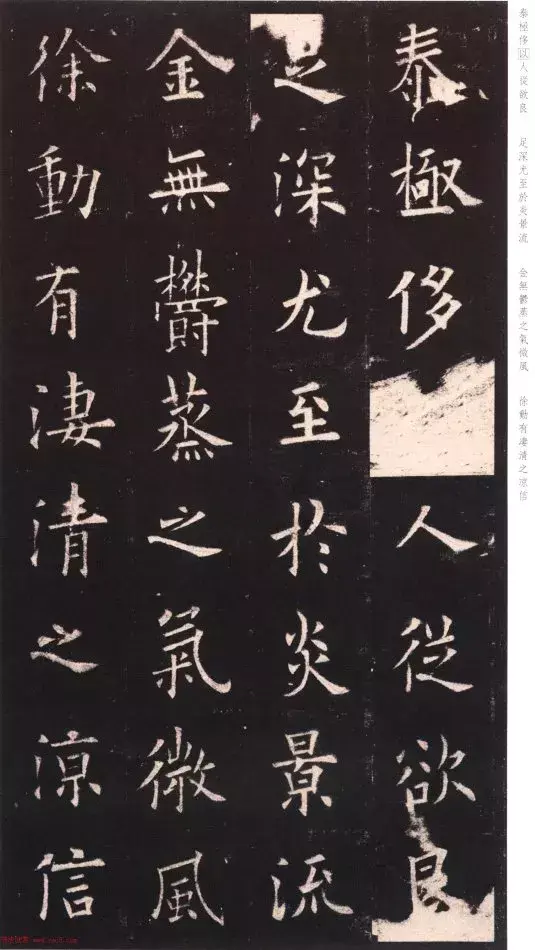 泰極侈以人從欲良 足深尤至於炎景流 金無鬱蒸之氣微風 徐動有凄清之涼信
泰極侈人從欲良
足深尤至於炎景流
金無鬱蒸之氣微風
徐動有淒清之涼信